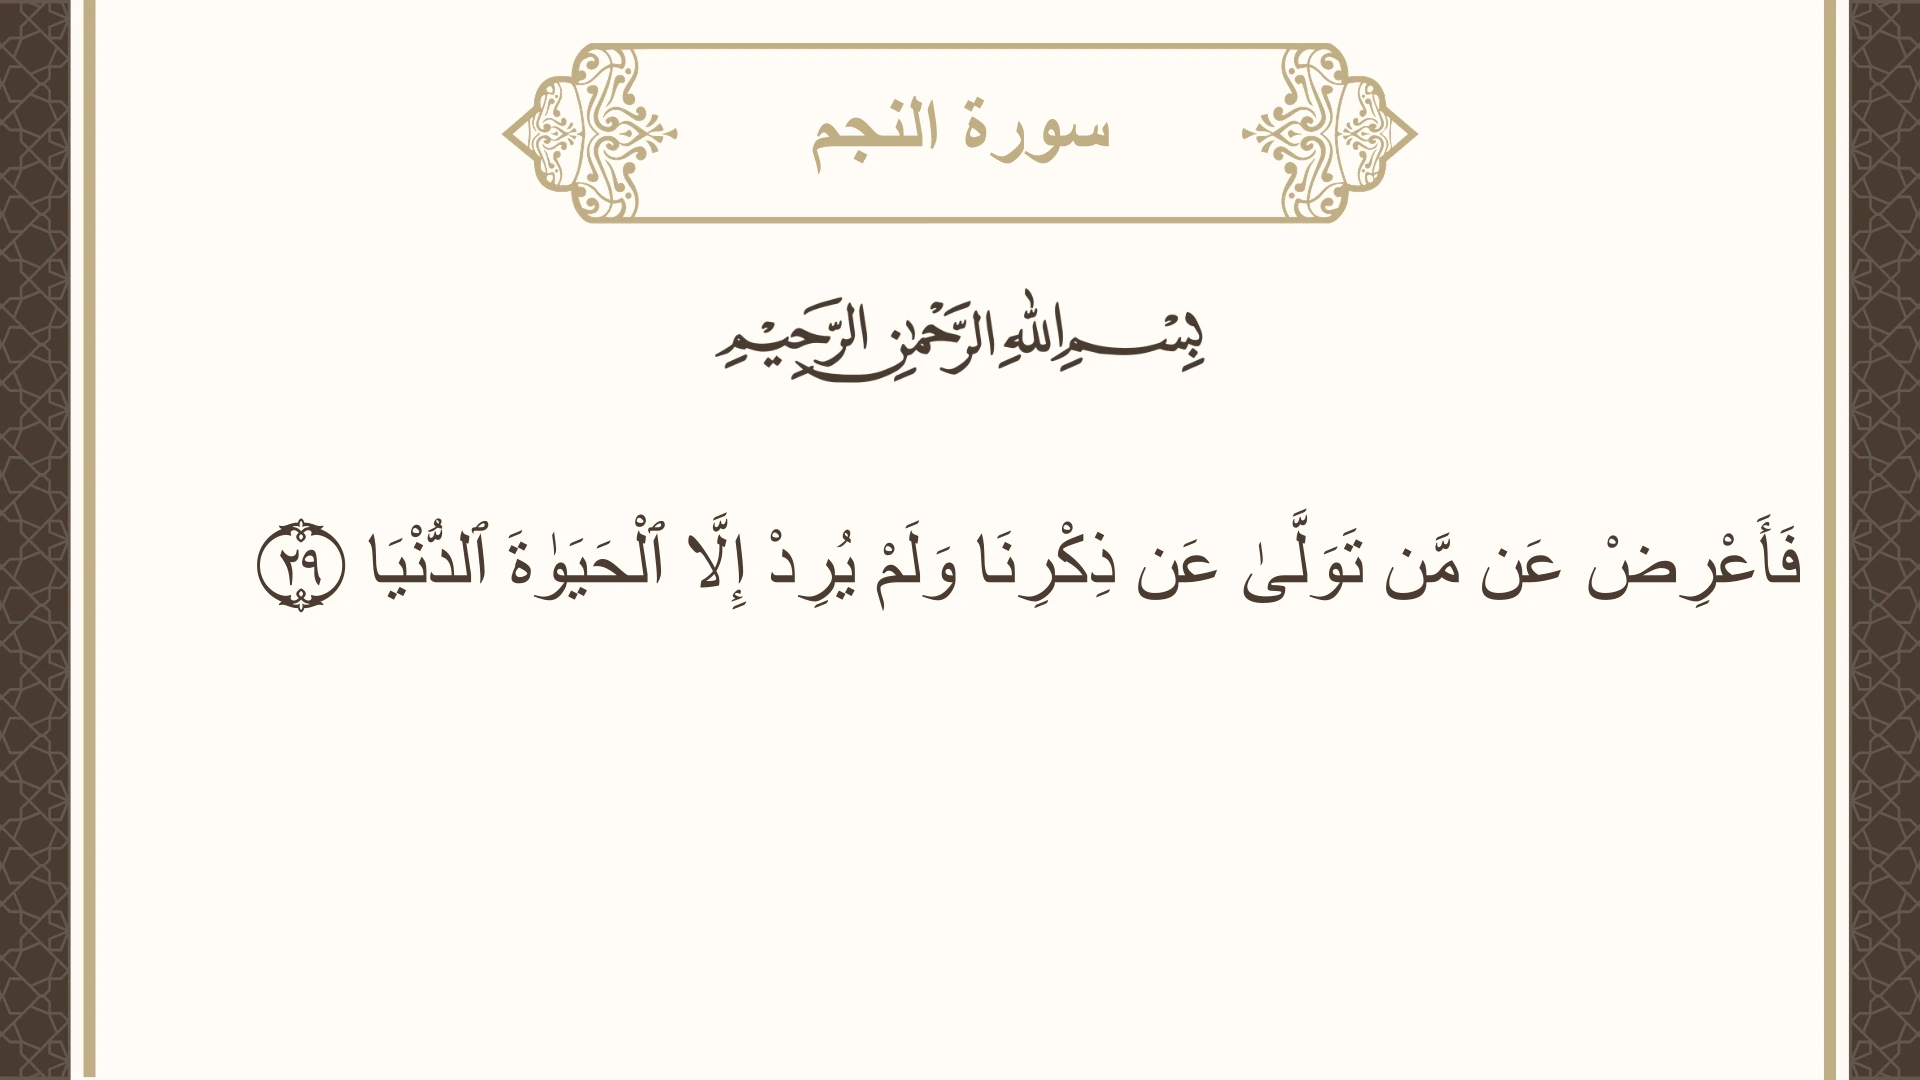 سورة النجم
بِسْمِ اللهِ الرَّحْمٰنِ الرَّحِيْمِ
فَأَعْرِضْ عَن مَّن تَوَلَّىٰ عَن ذِكْرِنَا وَلَمْ يُرِدْ إِلَّا ٱلْحَيَوٰةَ ٱلدُّنْيَا ٢٩